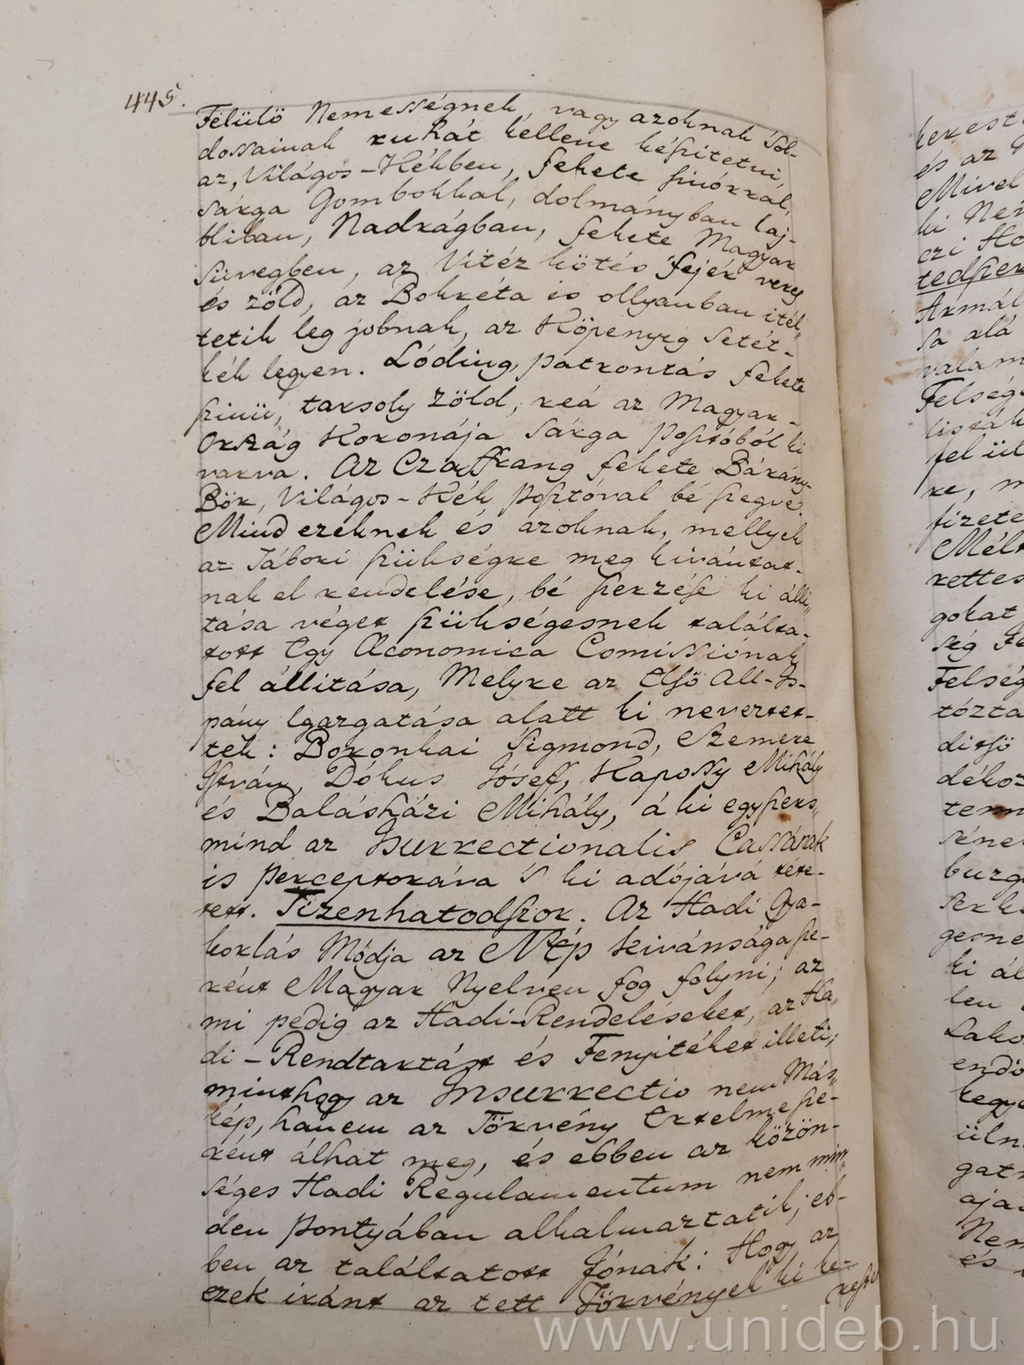 445.
Felülö Nemességnek, vagy azoknak Sol-
dossainak ruhát kellene képsitetni
az, Világos-Kékben, fekete sinórral,
sárga Gombokkal, dolmányban laj-
bliban, Nadrágban, fekete Magyar
Süvegben, az Vitéz kötés fejér veres
és zöld, az Bokréta is ollyanban itél-
tetik leg jobnak, az Köpenyeg Setét-
kék legyen. Lóding, patrontás fekete
szinü, tarsoly zöld, reá az Magyar-
Ország Koronája sárga posztóból ki
varva. Az Czaffrang fekete Bárány-
Bör, Világos-Kék posztóval bé szegve.
Mind ezeknek és azoknak, mellyek
az Tábori szükségre meg kivántat-
nak el rendelése, bé szerzése ki álli-
tása véget szükségesnek találta-
tott Egy Æconomica Comissiónak
fel állitása, Melyre az Elsö All-Is-
pány Igazgatása alatt ki nevezet-
tek: Boronkai Sigmond, Szemere
István, Dókus Jósef, Kapossy Mihály
és Balásházi Mihály, á ki egyszers-
mind az Insurrectionalis Cassának
is perceptorává 's ki adójává téte-
tett. Tizenhatodszor. Az Hadi Gya-
korlás Módja az Nép kivánsága sze-
rént Magyar Nyelven fog folyni; az
mi pedig az Hadi-Rendeléseket, az Ha-
di-Rendtartást és Fenyitéket illeti;
minthogy az Insurrectio nem Más-
kép, hanem az Törvény Értelme sze-
rént álhat meg, és ebben az közön-
séges Hadi Regulamentum nem min-
den pontyában alkalmaztatik; eb-
ben az találtatott Jónak: Hogy az
ezek iránt az tett Törvények ki ke-
www.unideb.hu
és az
Mivel
ki
czi
tedszer
sa alá
valam
Felség
fel ül
re, m
fizete
rettes
gokat
ség
Felség
tózta
burg
ki ál
len
gat
és